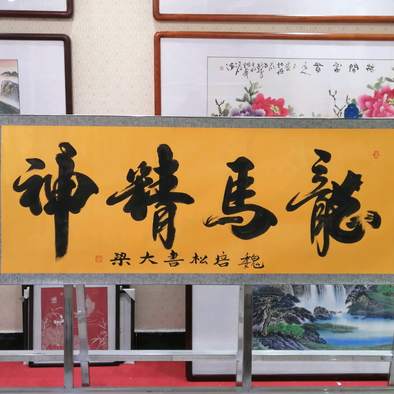 龍馬精神
魏培松書大梁